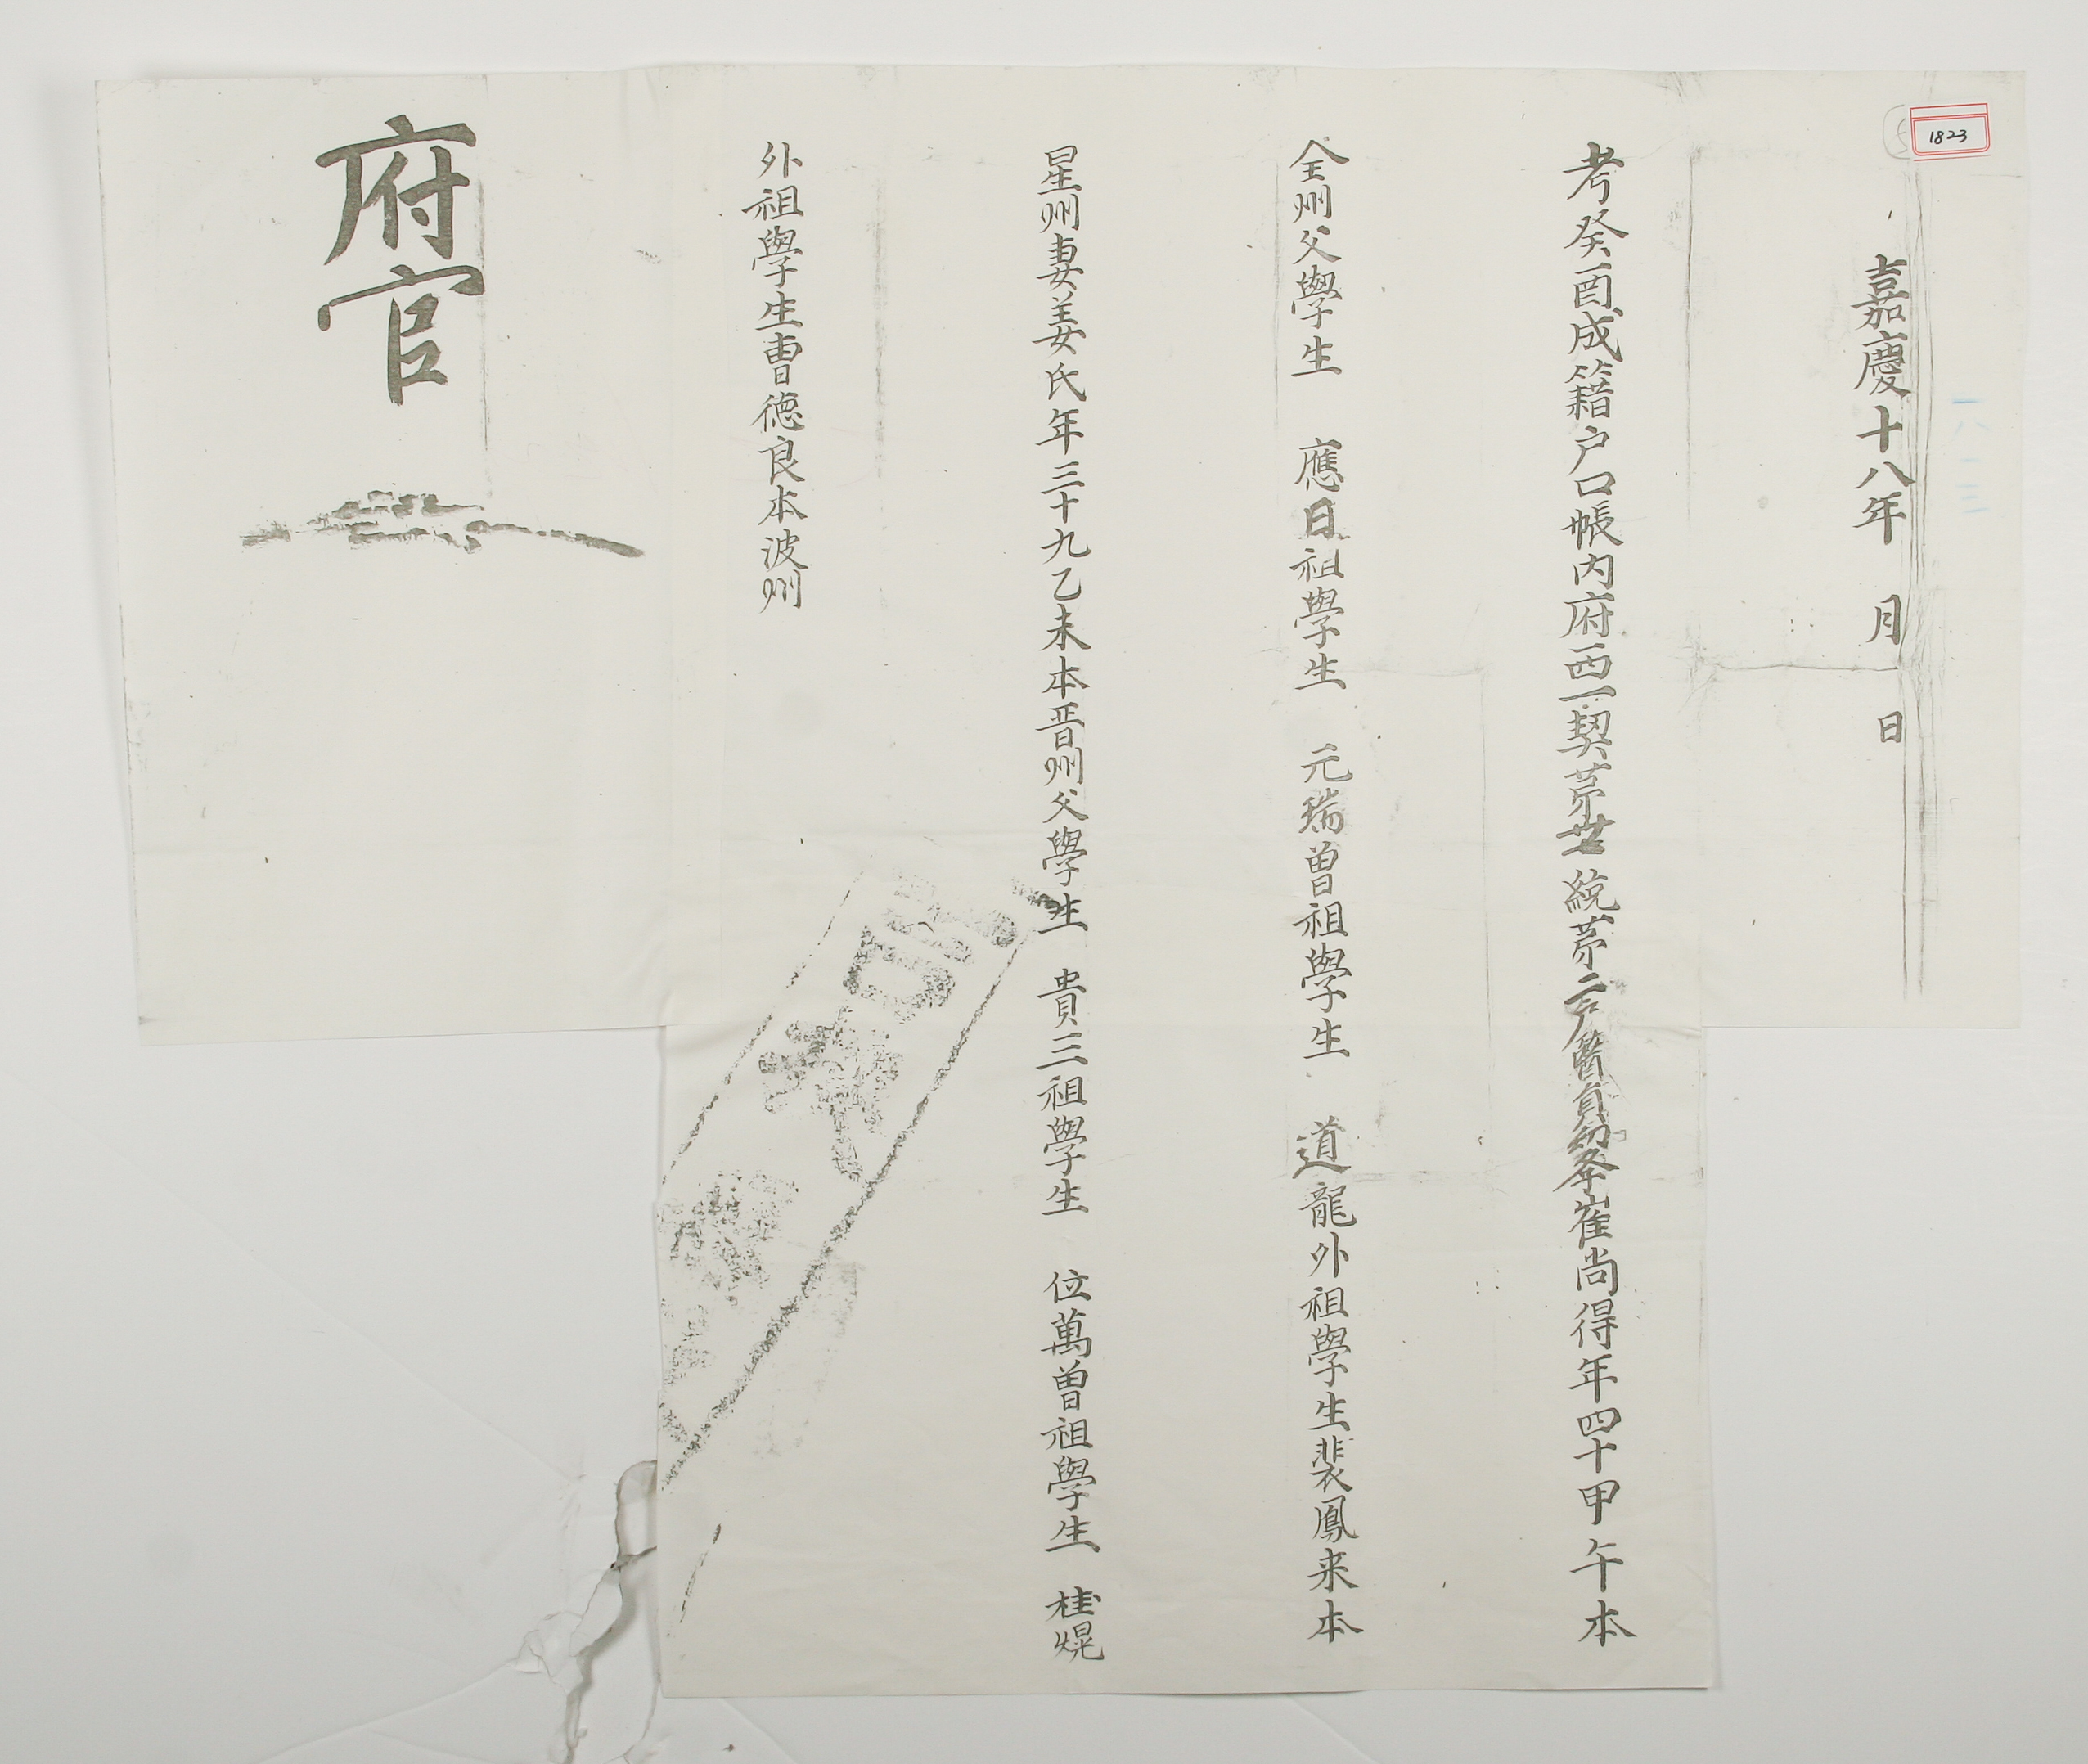 1823
嘉慶十八年 月 日
考癸酉成籍户口帳内府西一契苐廿統苐二户崔尚得年四十甲午本
全州父學生 應日祖學生 元瑞曾祖學生 道龍外祖學生裴鳳来本
星州妻姜氏年三十九乙未本晋州父學生 貴三祖學生 位萬曾祖學生 桂熀
外祖學生曺德良本波州
府官